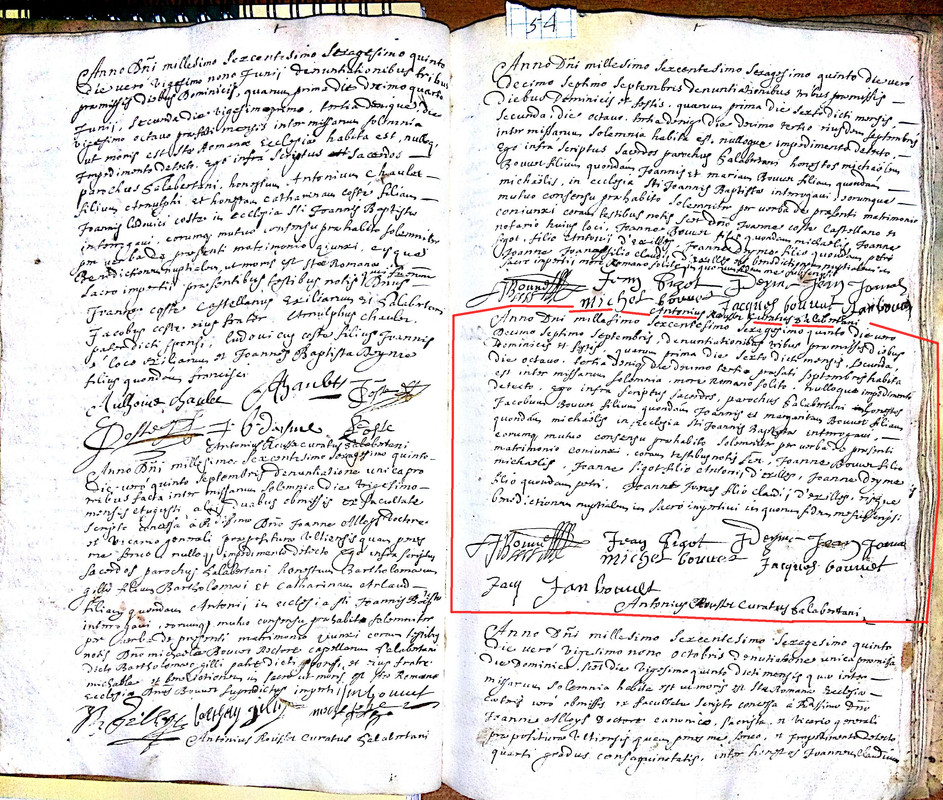 54
Anno Dñi millesimo sexcentesimo sexagesimo quinto
die vero vigesimo nono Junij denuntiationibus tribus
præmissis diebus Dominicis, quarum prima die decimo quarto
Junij, secunda die vigesimo primo, tertia denique die
vigesimo octavo mensis inter missarum solemnia
ut moris est stæ Romanæ Ecclesiæ habita est, nulloq
impedimento detecto, ego infra scriptus sacerdos
parochus salabertani, honestum Antonium Chaulet
filium Arnulphi, et honestam Catharinam coste filiam
Joannis ludovici coste in ecclesia sti Joannis Baptistæ
interrogavi, eorumq mutuo consensu præhabito solemniter
per verba de præsenti matrimonio coniunxi, eis que
Benedictionem nuptialem, ut moris est stæ Romanæ
sacro impertivi præsentibus testibus notis
Joanne coste Castellano Exiliarum et salabertani
Jacobus coste eius frater Arnulphus chaulet
pater dicti sponsi, ludovicus coste filius Joannis
e loco exiliarum et Joannes Baptista Deyme
filius quondam francisci
Chaulet
coste
J b deyme
Coste
Antonius Rousset curatus salabertani
Anno Dñi millesimo, sexcentesimo sexagesimo quinto
die vero quinto septembris denuntiatione unica pro
tribus facta inter missarum solemnia die vigesimo
mensis augusti, a duabus obmissis ex facultate
scripto concessa a Rdissimo Dño Joanne Alloys Doctore
et vicario generali præposituræ Ulliensis quam penes
me servo, nulloq impedimento detecto Ego infra scriptus
sacerdos parochus salabertani honestum Bartholomæum
gilli filium Bartholomei et catharinam
filiam quondam Antonij in ecclesia sti Joannis Baptæ
interrogavi, eorumq mutuo consensu præhabito solemniter
per verba de præsenti matrimonio coniunxi coram testibus
notis Dño michaele Bouvet Rectore capellarum salabertani
dicto Bartholomeo gilli patre dicti sponsi, et eius fratre
michaele et benedictionem in sacro ut moris est stæ Romanæ
Ecclesiæ
Bouvet
gilli
Antonius Rousset curatus salabertani
Anno Dñi millesimo sexcentesimo sexagesimo quinto die vero
Decimo septimo septembris denuntiationibus tribus præmissis
diebus Dominicis et festis, quarum prima die sexto dicti mensis,
secunda, die octavo, tertia deniq die decimo tertio eiusdem septembris
inter missarum solemnia habita est, nulloque impedimento detecto,
Ego infra scriptus sacerdos parochus salabertani honestos michaëlem
Bouvet filium quondam Joannis et mariam Bouvet filiam quondam
michaëlis, in ecclesia sti Joannis Baptistæ interrogavi, eorumque
mutuo consensu præhabito solemniter per verba de præsenti matrimonio
coniunxi coram testibus notis Joanne coste Castellano et
notario huius loci, Joanne Bouvet filio quondam michaëlis, Joanne
sigot filio Antonij d'exilles, Joanne deyme filio quondam petri
Joanne filio claudij d'exilles
JBouvet Jean Sigot Deyme Jean Jouna
michel bouvet Jacques bouvet Jan bouvet
Antonius Rousset Curatus salabertani
Anno Dñi millesimo sexcentesimo sexagesimo quinto die vero
Decimo septimo septembris, denuntiationibus tribus præmissis diebus
Dominicis et festis, quarum prima die sexto dicti mensis, secunda,
die octavo, tertia deniq die decimo tertio præsati septembris habita
est inter missarum solemnia, more Romano solito, nulloque impedimento
detecto, ego infra scriptus sacerdos, parochus salabertani honestos
Jacobum Bouvet filium quondam Joannis et margaritam Bouvet filiam
quondam michaëlis in Ecclesia sti Joannis Baptistæ interrogavi,
eorumq mutuo consensu præhabito solemniter per verba de præsenti
matrimonio coniunxi, coram testibus notis Joanne Bouvet filio
michaëlis, Joanne sigot filio Antonij, d'exilles, Joanne Deyme
filio quondam petri, Joanne filio claudij d'exilles, eisque
benedictionem nuptialem in sacro impertivi in quorum fidem me subscripsi
JBouvet Jean Sigot Deyme Jean Jouna
michel bouvet Jacques bouvet
Jacq Jan bouvet
Antonius Rousset Curatus salabertani
Anno Dñi millesimo sexcentesimo, sexagesimo quinto
die vero vigesimo nono octobris denuntiatione unica præmissa
die Dominica, vigesimo quinto dicti mensis quæ inter
missarum solemnia habita est ut moris est stæ Romanæ Ecclesiæ
cæteris vero obmissis ex facultate scripto concessa a Rdissimo Dño
Joanne Alloys Doctore canonico, sacrista, et vicario generali
præposituræ Ulliensis quam penes me servo, et impedimento detecto
quarti gradus consanguinitatis, inter honestos Joannem